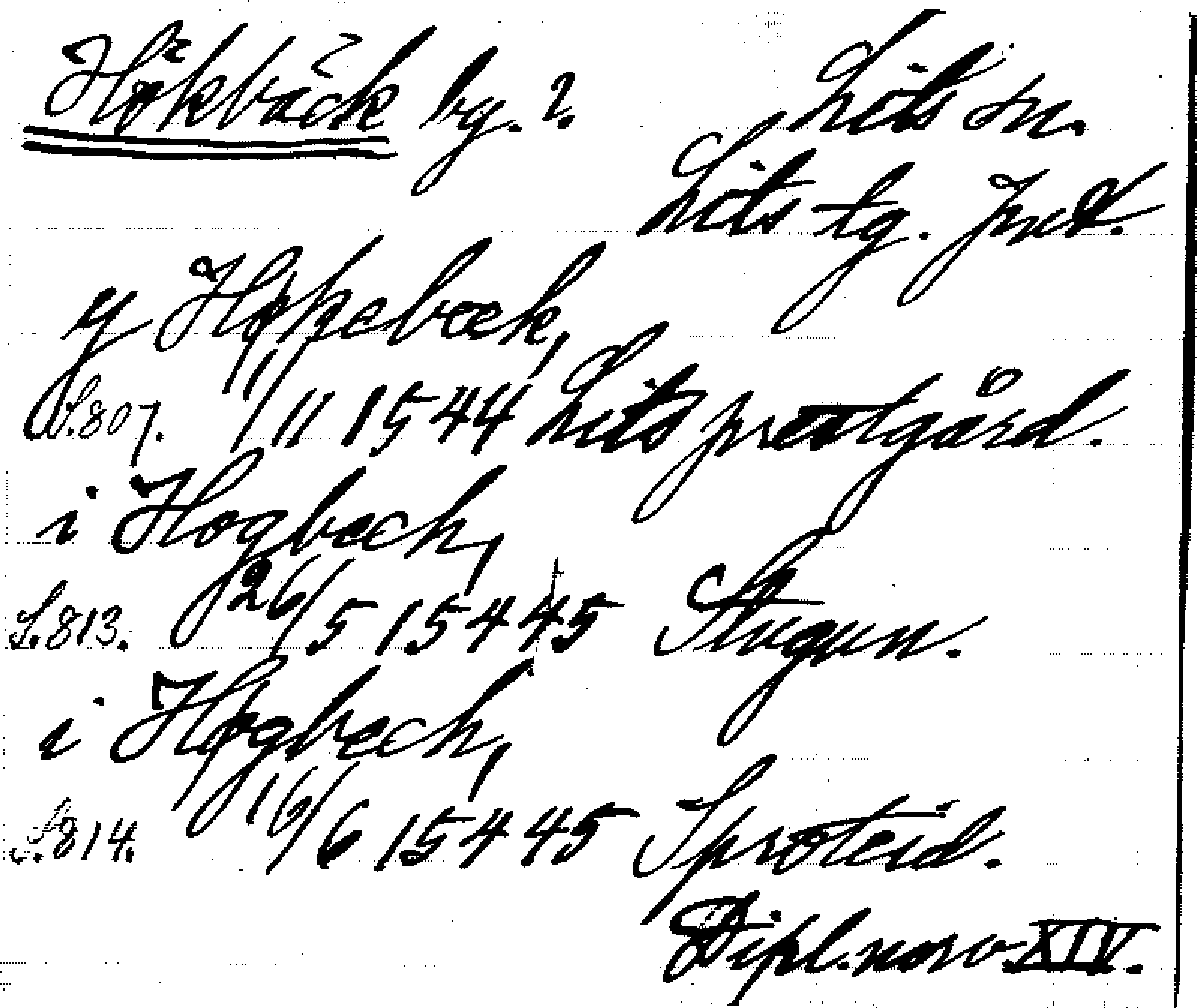 Hökbäck by. ?. Lits sn.
Lits tg. Jmtl.
y Høkebeck,
S.807. 11/11 1544 Lits prestgård.
i Hogbech,
S.813. 26/5 15445 Stugun.
i Høgbech,
S.814. 16/6 15445 Sproteid.
Dipl. norv. XIV.